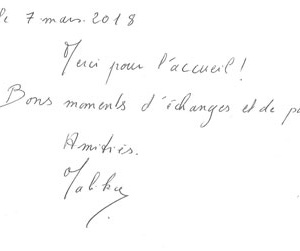 le 7 mars 2018
Merci pour l'accueil !
Bons moments d'échanges et de
Amitiés.